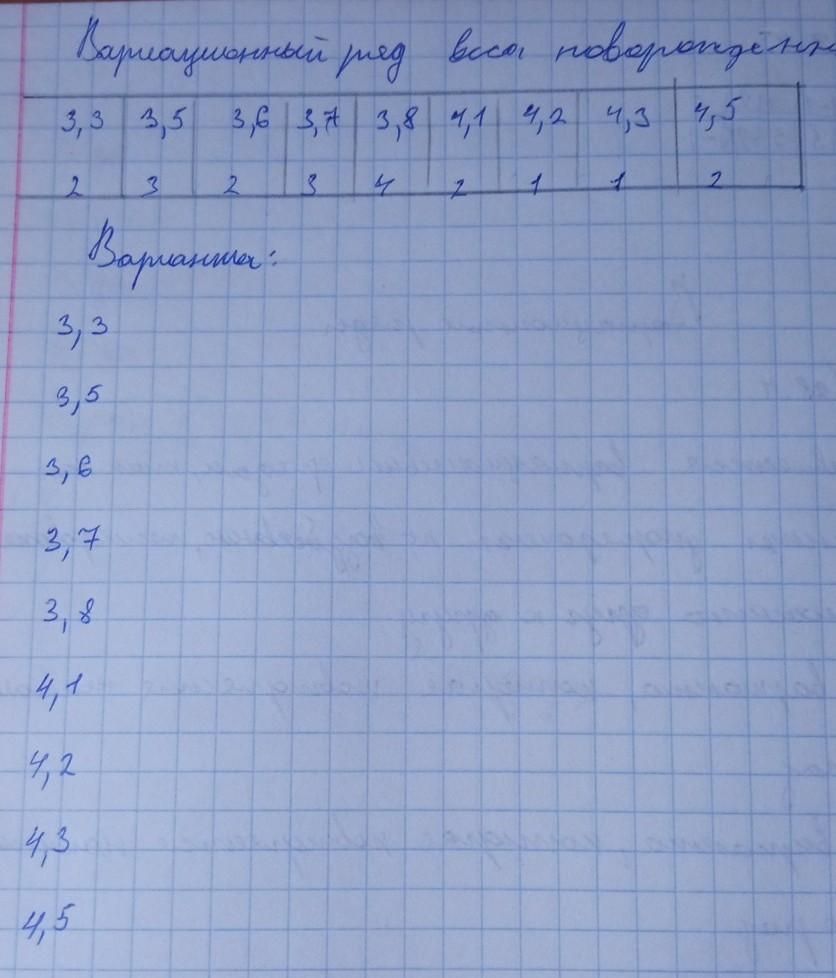 Вариационный ряд веса новорождённ
3,3 3,5 3,6 3,7 3,8 4,1 4,2 4,3 4,5
2 3 2 3 4 2 1 1 2
Варианта:
3,3
3,5
3,6
3,7
3,8
4,1
4,2
4,3
4,5